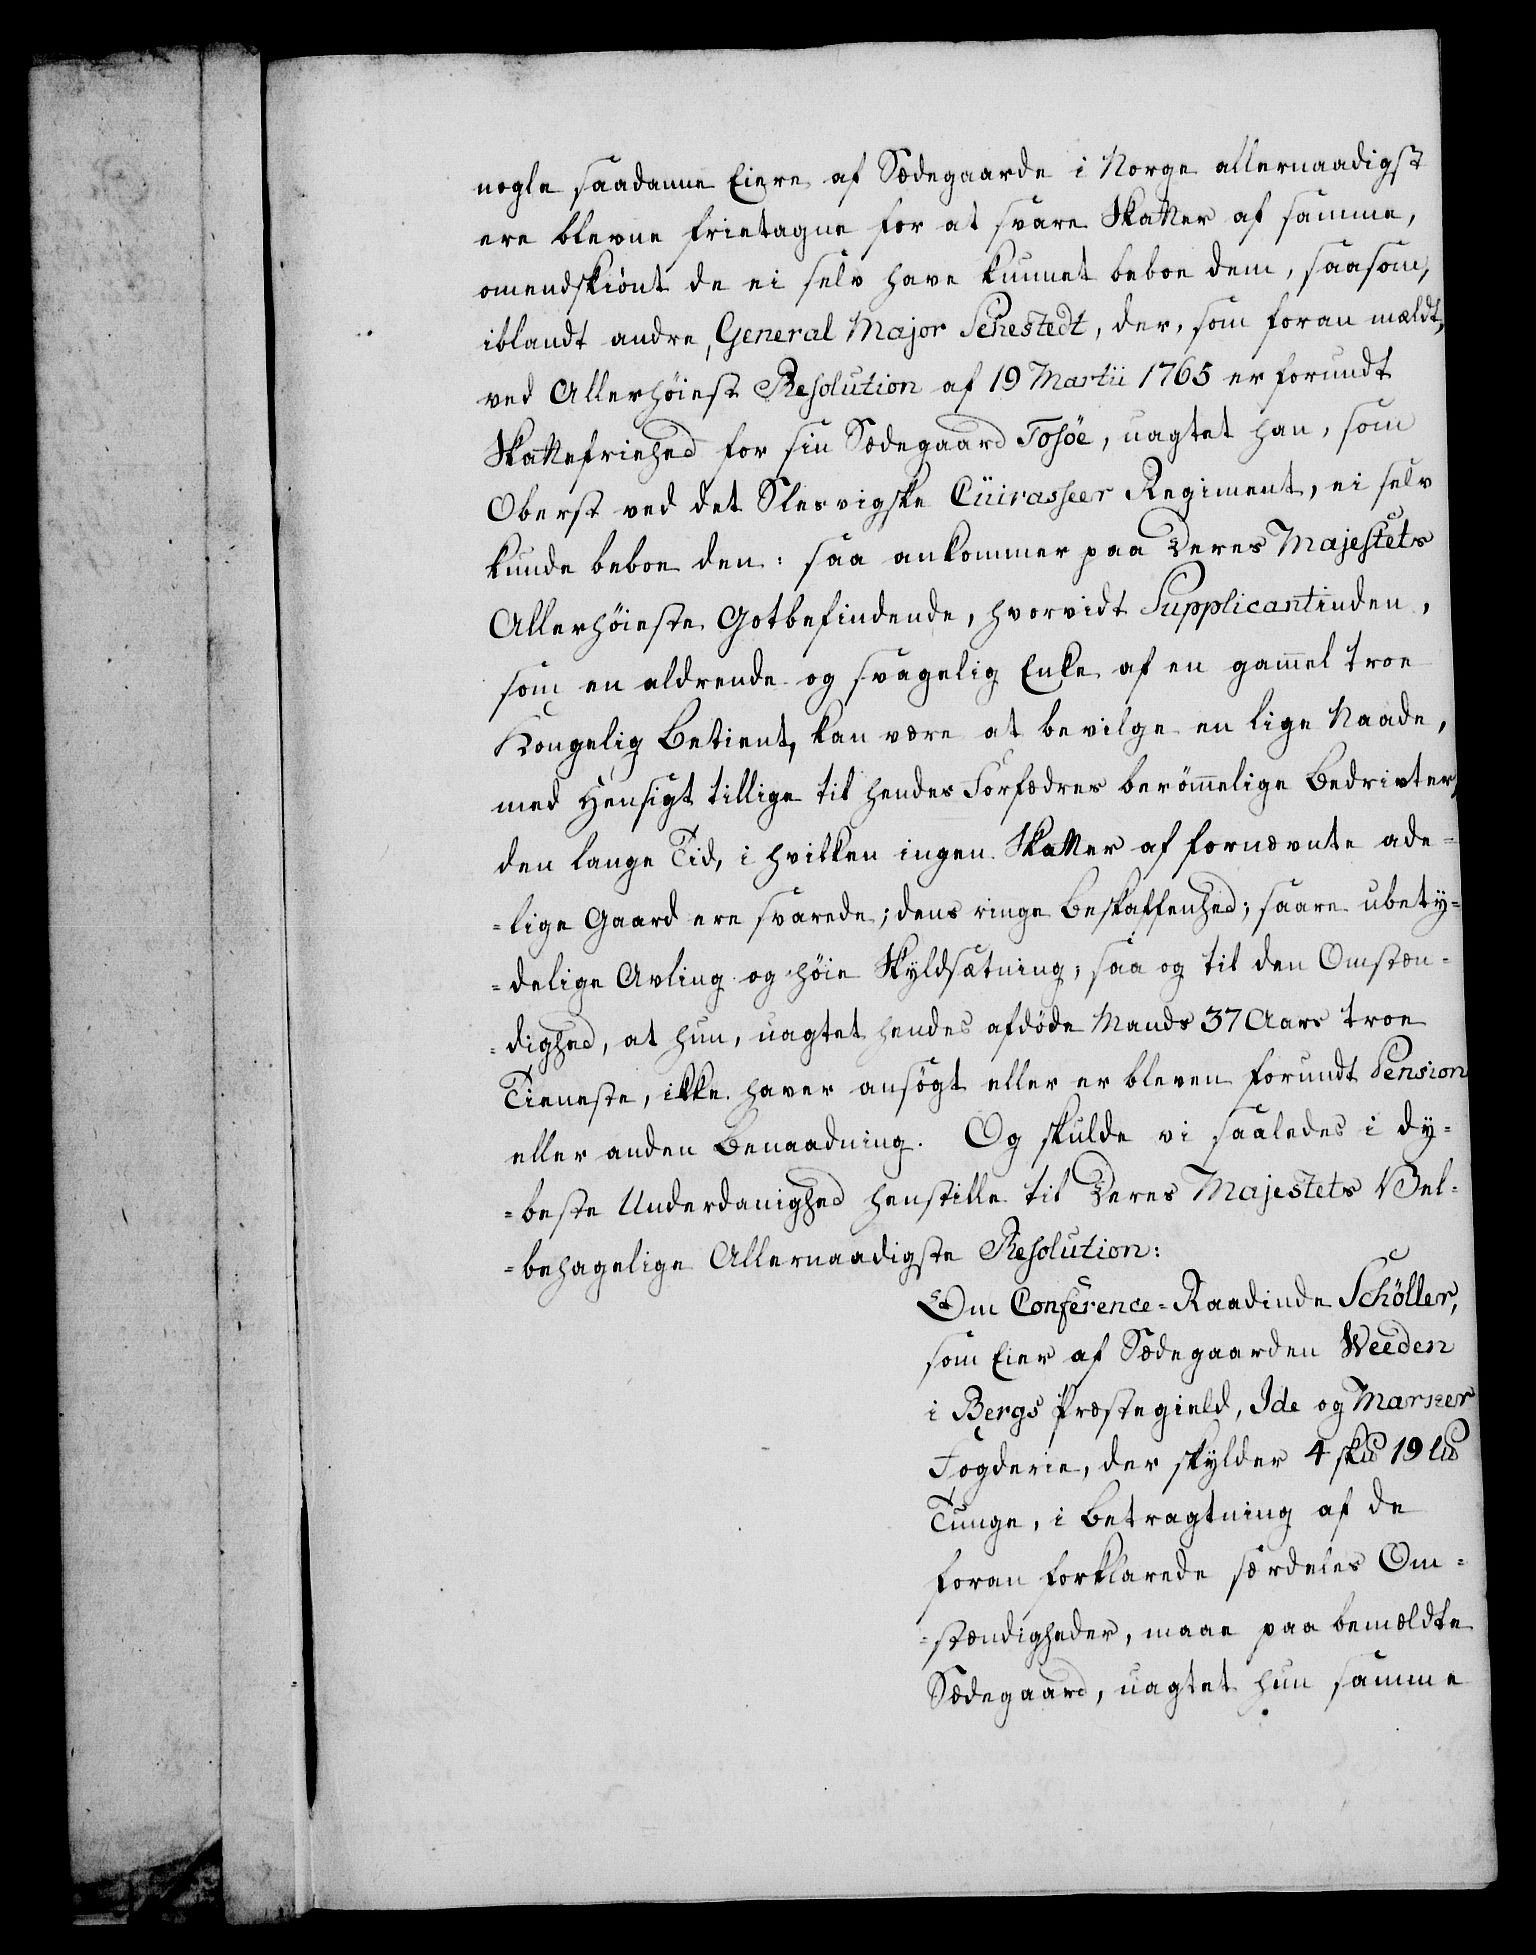 nogle saadanne Eiere af Sædegaarde i Norge allernaadigst
ere blevne frietagne for at svare Skatter af samme,
omendskiönt de ei selv have kunnet beboe dem, saasom,
iblandt andre, General Major Sehestedt, der, som foran mældt,
ved Allerhöiest Resolution af 19 Martii 1765 er forundt
Skattefriehed for sin Sædegaard Tosöe, uagtet han, som
Oberst ved det Slesvigske Cüirasseer Regiment, ei selv
kunde beboe den: saa ankommer paa Deres Majestets
Allerhöieste Gotbefindende, hvorvidt Supplicantinden,
som en aldrende og svagelig Enke af en gam̄el troe
Kongelig Betient, kan være at bevilge en lige Naade,
med Hensigt tillige til hendes Forfædres beröm̄elige Bedrivter,
den lange Tid, i hvilken ingen Skatter af fornævnte ade=
=lige Gaard ere svarede; dens ringe Beskaffenhed; saare ubety=
=delige Avling og höie Skyldsætning; saa og til den Omstæn=
=dighed, at hun, uagtet hendes afdöde Mands 37 Aars troe
Tieneste, ikke haver ansögt eller er bleven forundt Pension
eller anden Benaadning. Og skulde vi saaledes i dy=
=beste Underdanighed henstille til Deres Majestets Vel=
=behagelige Allernaadigste Resolution:
Om Conference=Raadinde Schöller,
som Eier af Sædegaarden Weeden
i Bergs Præstegield, Ide og Marker
Fogderie, der skylder 4 skd 19 ld
Tunge, i Betragtning af de
foran forklarede særdeles Om=
=stændigheder, maae paa bemældte
Sædegaard, uagtet hun samme